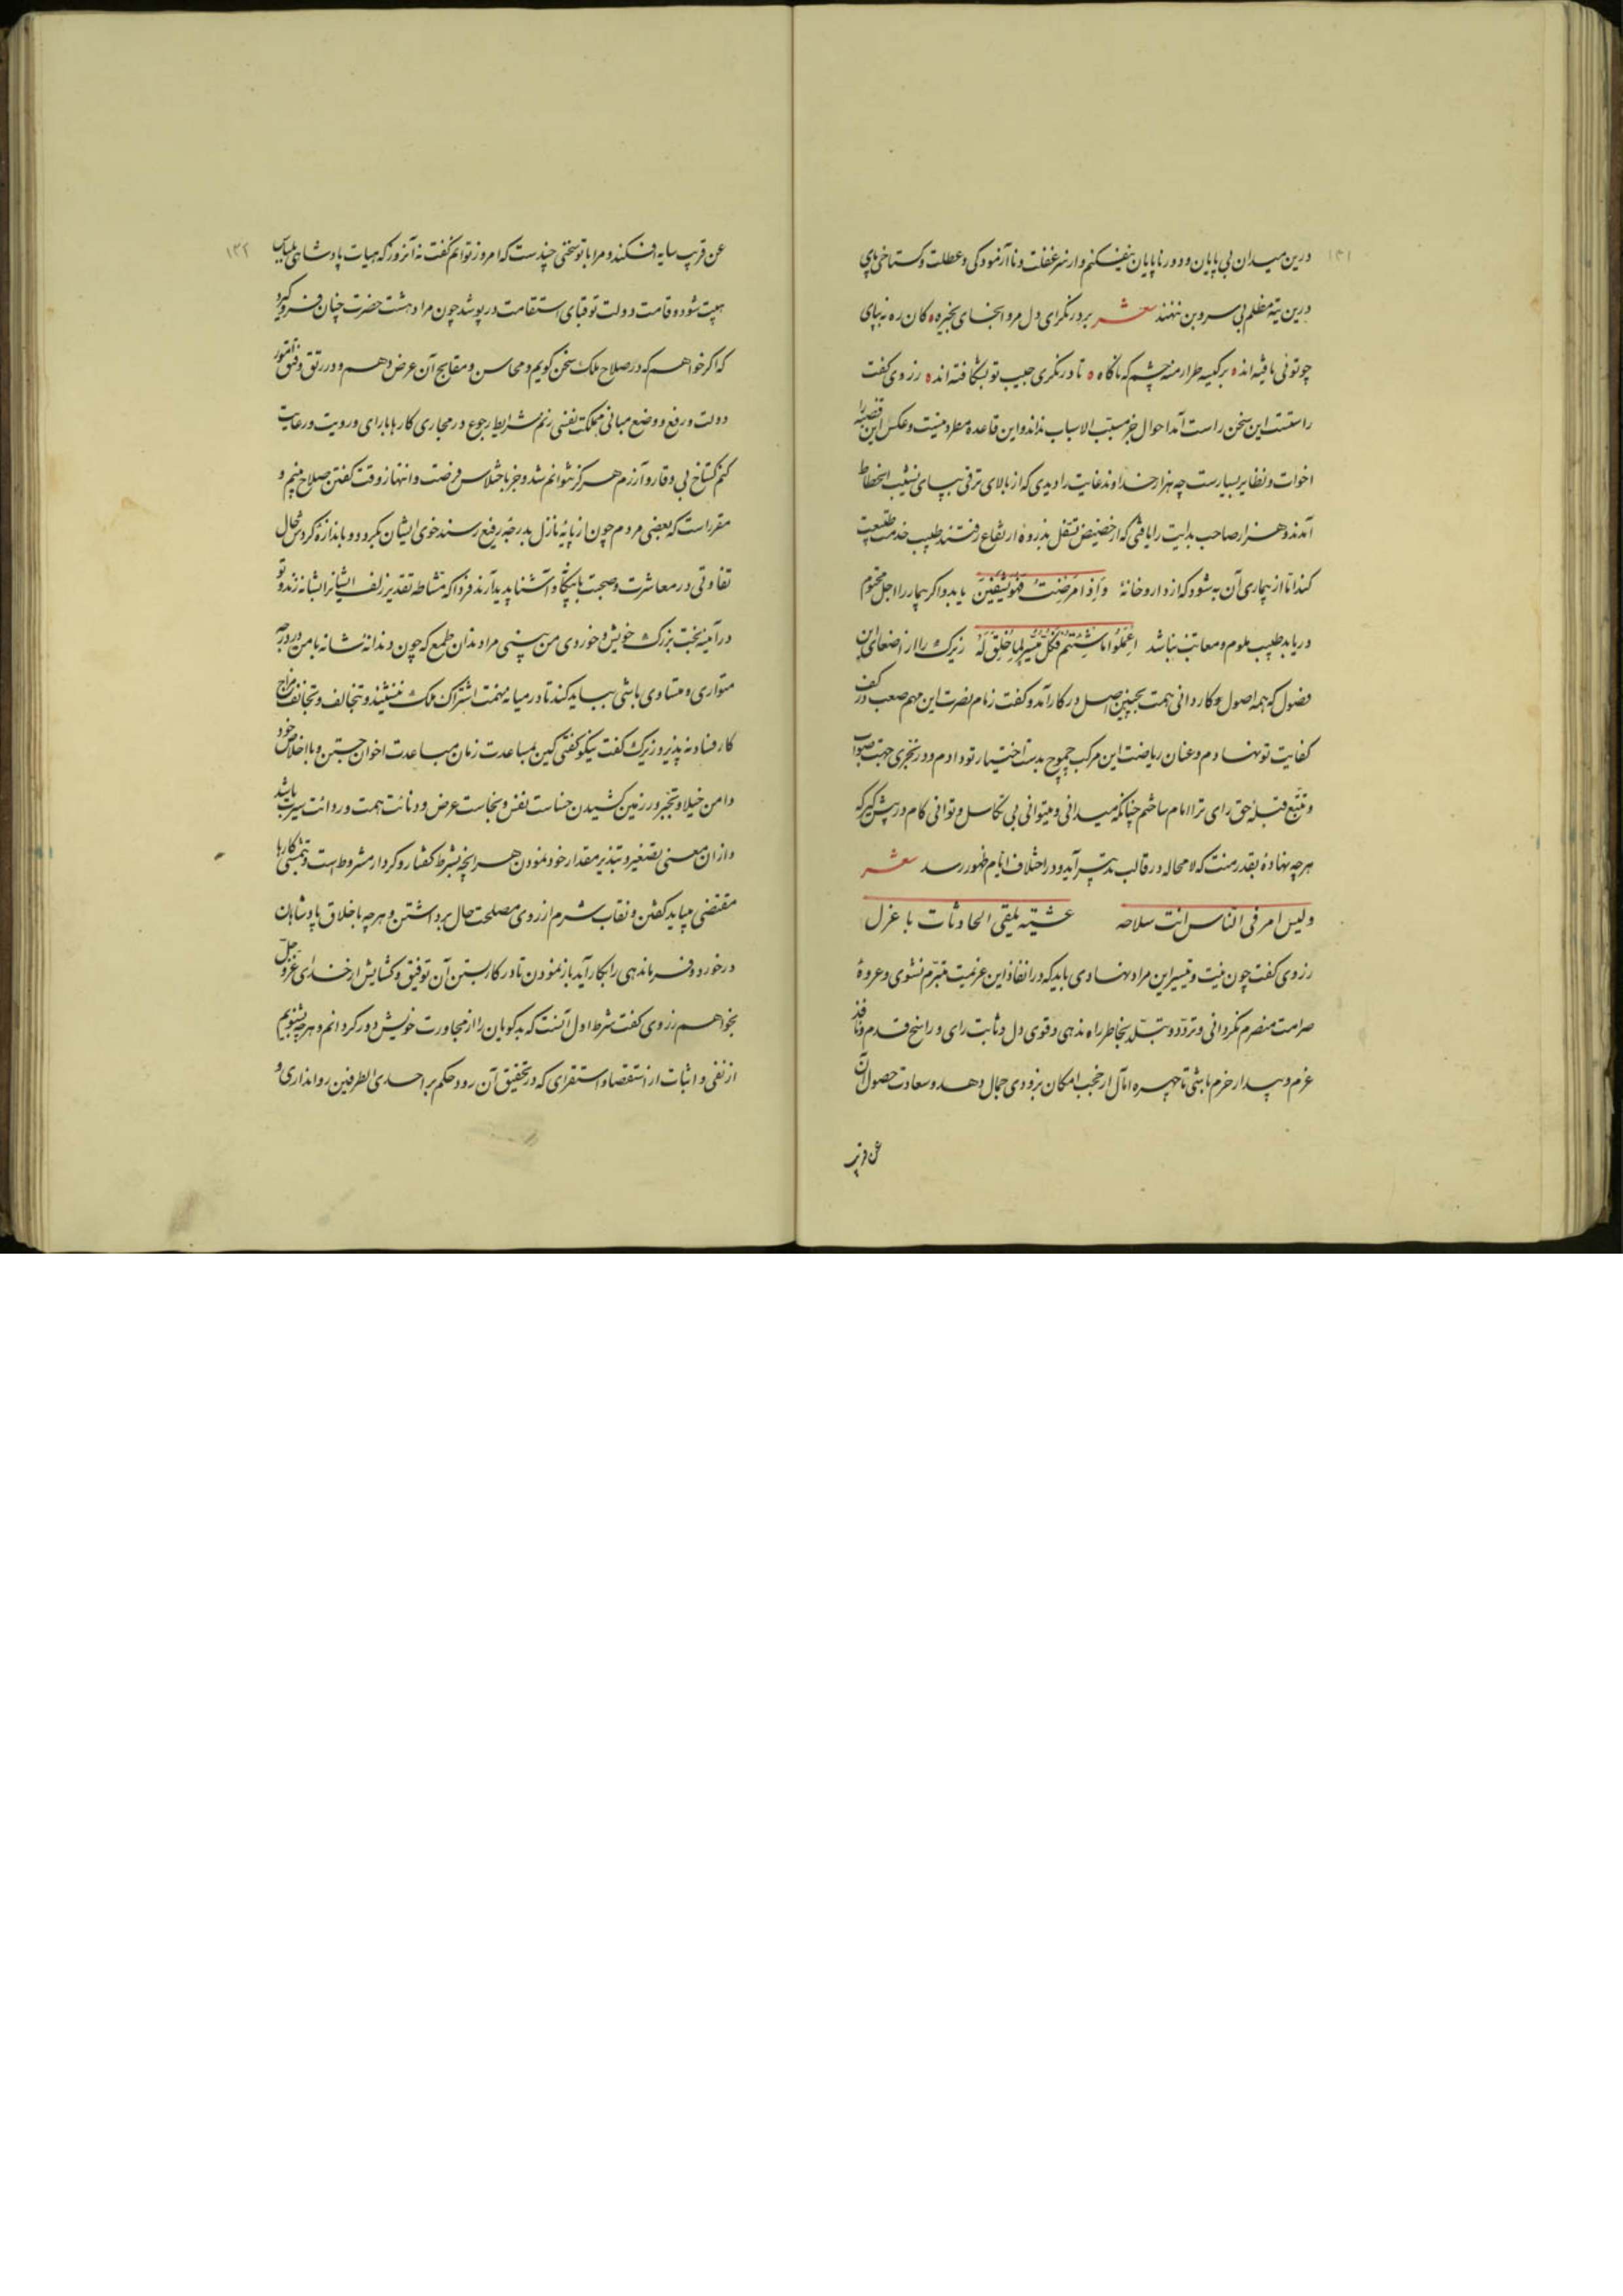 ۱۳۱
درین میدان بی پایان و دور ناپایان نیفکنم و از سر غفلت و ناآزمودگی و عطلت و گستاخی پای
درین تیه مظلم بی سر و بن ننهند شعر بر در نگر ای دل مرو اینجای بخیره ه کان ره نه بپای
چو توئی یافته‌اند ه بر کیسه طرار منه چشم که ناگاه ه تا درنگری جیب تو بشکافته‌اند ه زروی گفت
راستست این سخن راست آمد احوال جز مسبب الاسباب نداند و این قاعده مطرد نیست و عکس این قضیه را
اخوات و نظایر بسیارست چه هزار خداوند غایت را دیدی که از بالای ترقی بپای نشیب انحطاط
آمدند و هزار صاحب بدایت را یافتی که از حضیض تسفل بذروه ارتفاع رفتند طبیب خدمت طبیعت
کند اما از بیماری آن به شود که از داروخانهٔ وَاِذا مَرِضْتُ فَهُوَ یَشْفِینَ یابد و اگر بیمار را اجل محتوم
دریابد طبیب ملوم و معاتب نباشد اِعْمَلُوا ما شِئْتُم فَکُلٌّ مُیَسَّرٌ لِما خُلِقَ لَهُ زیرک را از اصغای این
فصول که همه اصول و کاردانی همت بجنبین اصل در کار آمد و گفت زمام نصرت این مهم صعب در کف
کفایت تو نهادم و عنان ریاضت این مرکب جموح بدست اختیار تو دادم و در تحری جهت صواب
و تتبع قبلهٔ حق رای ترا امام ساختم چنانکه میدانی و میتوانی بی تکاسل و توانی کام درپیش گیر که
هرچه نهادهٔ بقدرمنت که لامحاله در قالب تدبیر آید و در اختلاف ایام ظهور رسد شعر
ولیس امر فی الناس انت سلاحه عشیة یلقی الحادثات با عزل
زروی گفت چون نیت و تیسیر این مراد نهادی باید که در انفاذ این عزیمت متبرم نشوی و عروهٔ
صرامت منصرم نگردانی و تردد و تبلد بخاطر راه ندهی و قوی دل و ثابت رای و راسخ قدم و نافذ
عزم و بیدار حزم باشی تا چهره امال از حجب امکان بزودی جمال دهد و سعادت حصول آن
عن قریب
۱۳۲
عن قریب سایه افکند و مرا با تو سخنی چندست که امروز توانم گفت نه آنروز که هیات پادشاهی بلباس
هیبت شود و قامت دولت تو قبای استقامت درپوشد چون مرا دهشت حضرت چنان فرو گیرد
که اگر خواهم که در صلاح ملک سخن گویم و محاسن و مقابح آن عرض دهم و در رتق و فتق امور
دولت و رفع و وضع مبانی مملکت نفسی زنم شرایط رجوع در مجاری کارها با رای و رویت و رعایت
کنم گستاخ بی وقار و آزرم هرگز نتوانم شد و جز باختلاس فرصت و انتهاز وقت گفتن صلاح نبینم و
مقررست که بعضی مردم چون از پایهٔ نازل بدرجهٔ رفیع رسند خوی ایشان بگردد و باندازهٔ گردش حال
تفاوتی در معاشرت و صحبت با بیگانه و آشنا پدید آرند فردا که مشاطه تقدیر زلف ایشانرا بشانه زند و تو
در آینه بخت بزرگ خویش و خوردی من بینی مرا دندان طمع که چون دندانهٔ شانه با من در درجه
متوازی و متساوی باشی بباید کند تا در میانه مهمت اشتراک ملک ننشیند و تخالف و تجانف مزاج
کار فساد نه پذیرد زیرک گفت نیکو گفتی لکن بمساعدت زمان مباعدت اخوان جستن و با اخلاص خود
دامن خیلا و تجبر در زمین کشیدن خساست نفس و نجاست عرض و دنائت همت و ردائت سیرت باشد
و ازان معنی بتصغیر و تبذیر مقدار خود نمودن هر انچه بشرط گفتار و کردار مشروط است و تمشی کارها
مقتضی میباید گفتن و نقاب شرم از روی مصلحت حال برداشتن و هرچه باخلاق پادشاهان
درخورد و فرماندهی را بکار آید بازنمودن تا در کار بستن آن توفیق و گشایش از خدای عز و جل
بخواهم زروی گفت شرط اول آنست که بدگویان را از مجاورت خویش دور گردانم و هرچه بشنویم
از نفی و اثبات از استقصا و استقرای که در تحقیق آن رود حکم بر احدی الطرفین روا نداری و